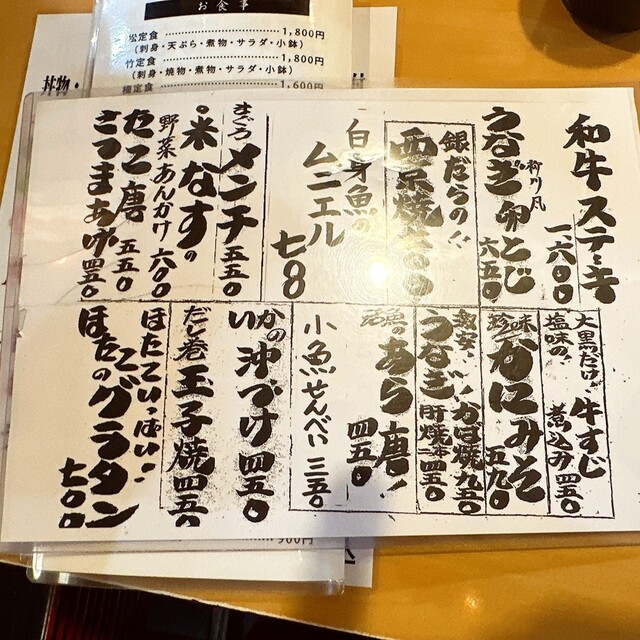 お食事
松定食 1,800円
(刺身・天ぷら・煮物・サラダ・小鉢)
竹定食 1,800円
(刺身・焼物・煮物・サラダ・小鉢)
1,600円
丼物・
和牛ステーキ
一六〇〇
柳川風
うなぎ卵とじ
六五〇
銀だらの
西京焼
白身魚の
ムニエル
七八
まぐろ
メンチ
五五〇
米なすの
野菜あんかけ 六〇〇
たこ唐
五五〇
さつまあげ 四五〇
大黒だけ!
塩味の 牛すじ
煮込み 四五〇
珍味
かにみそ
五九〇
うなぎ
かば焼 九五〇
肝焼 二本 四五〇
魚のあら唐!
四五〇
小魚せんべい 三五〇
いかの沖づけ 四五〇
だし巻 玉子焼 四五〇
ほたていっぱい!
ほたてのグラタン
七〇〇
900円